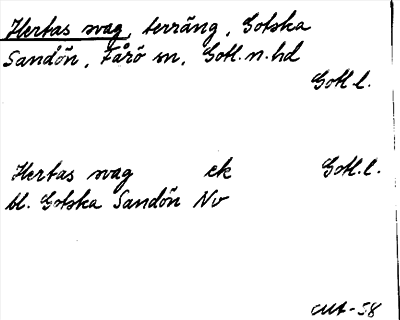 Hertas svag, terräng, Gotska
Sandön, Fårö sn, Gotl.n.hd
Gotl l.
Hertas svag ek Gotl.l.
bl. Gotska Sandön Nv